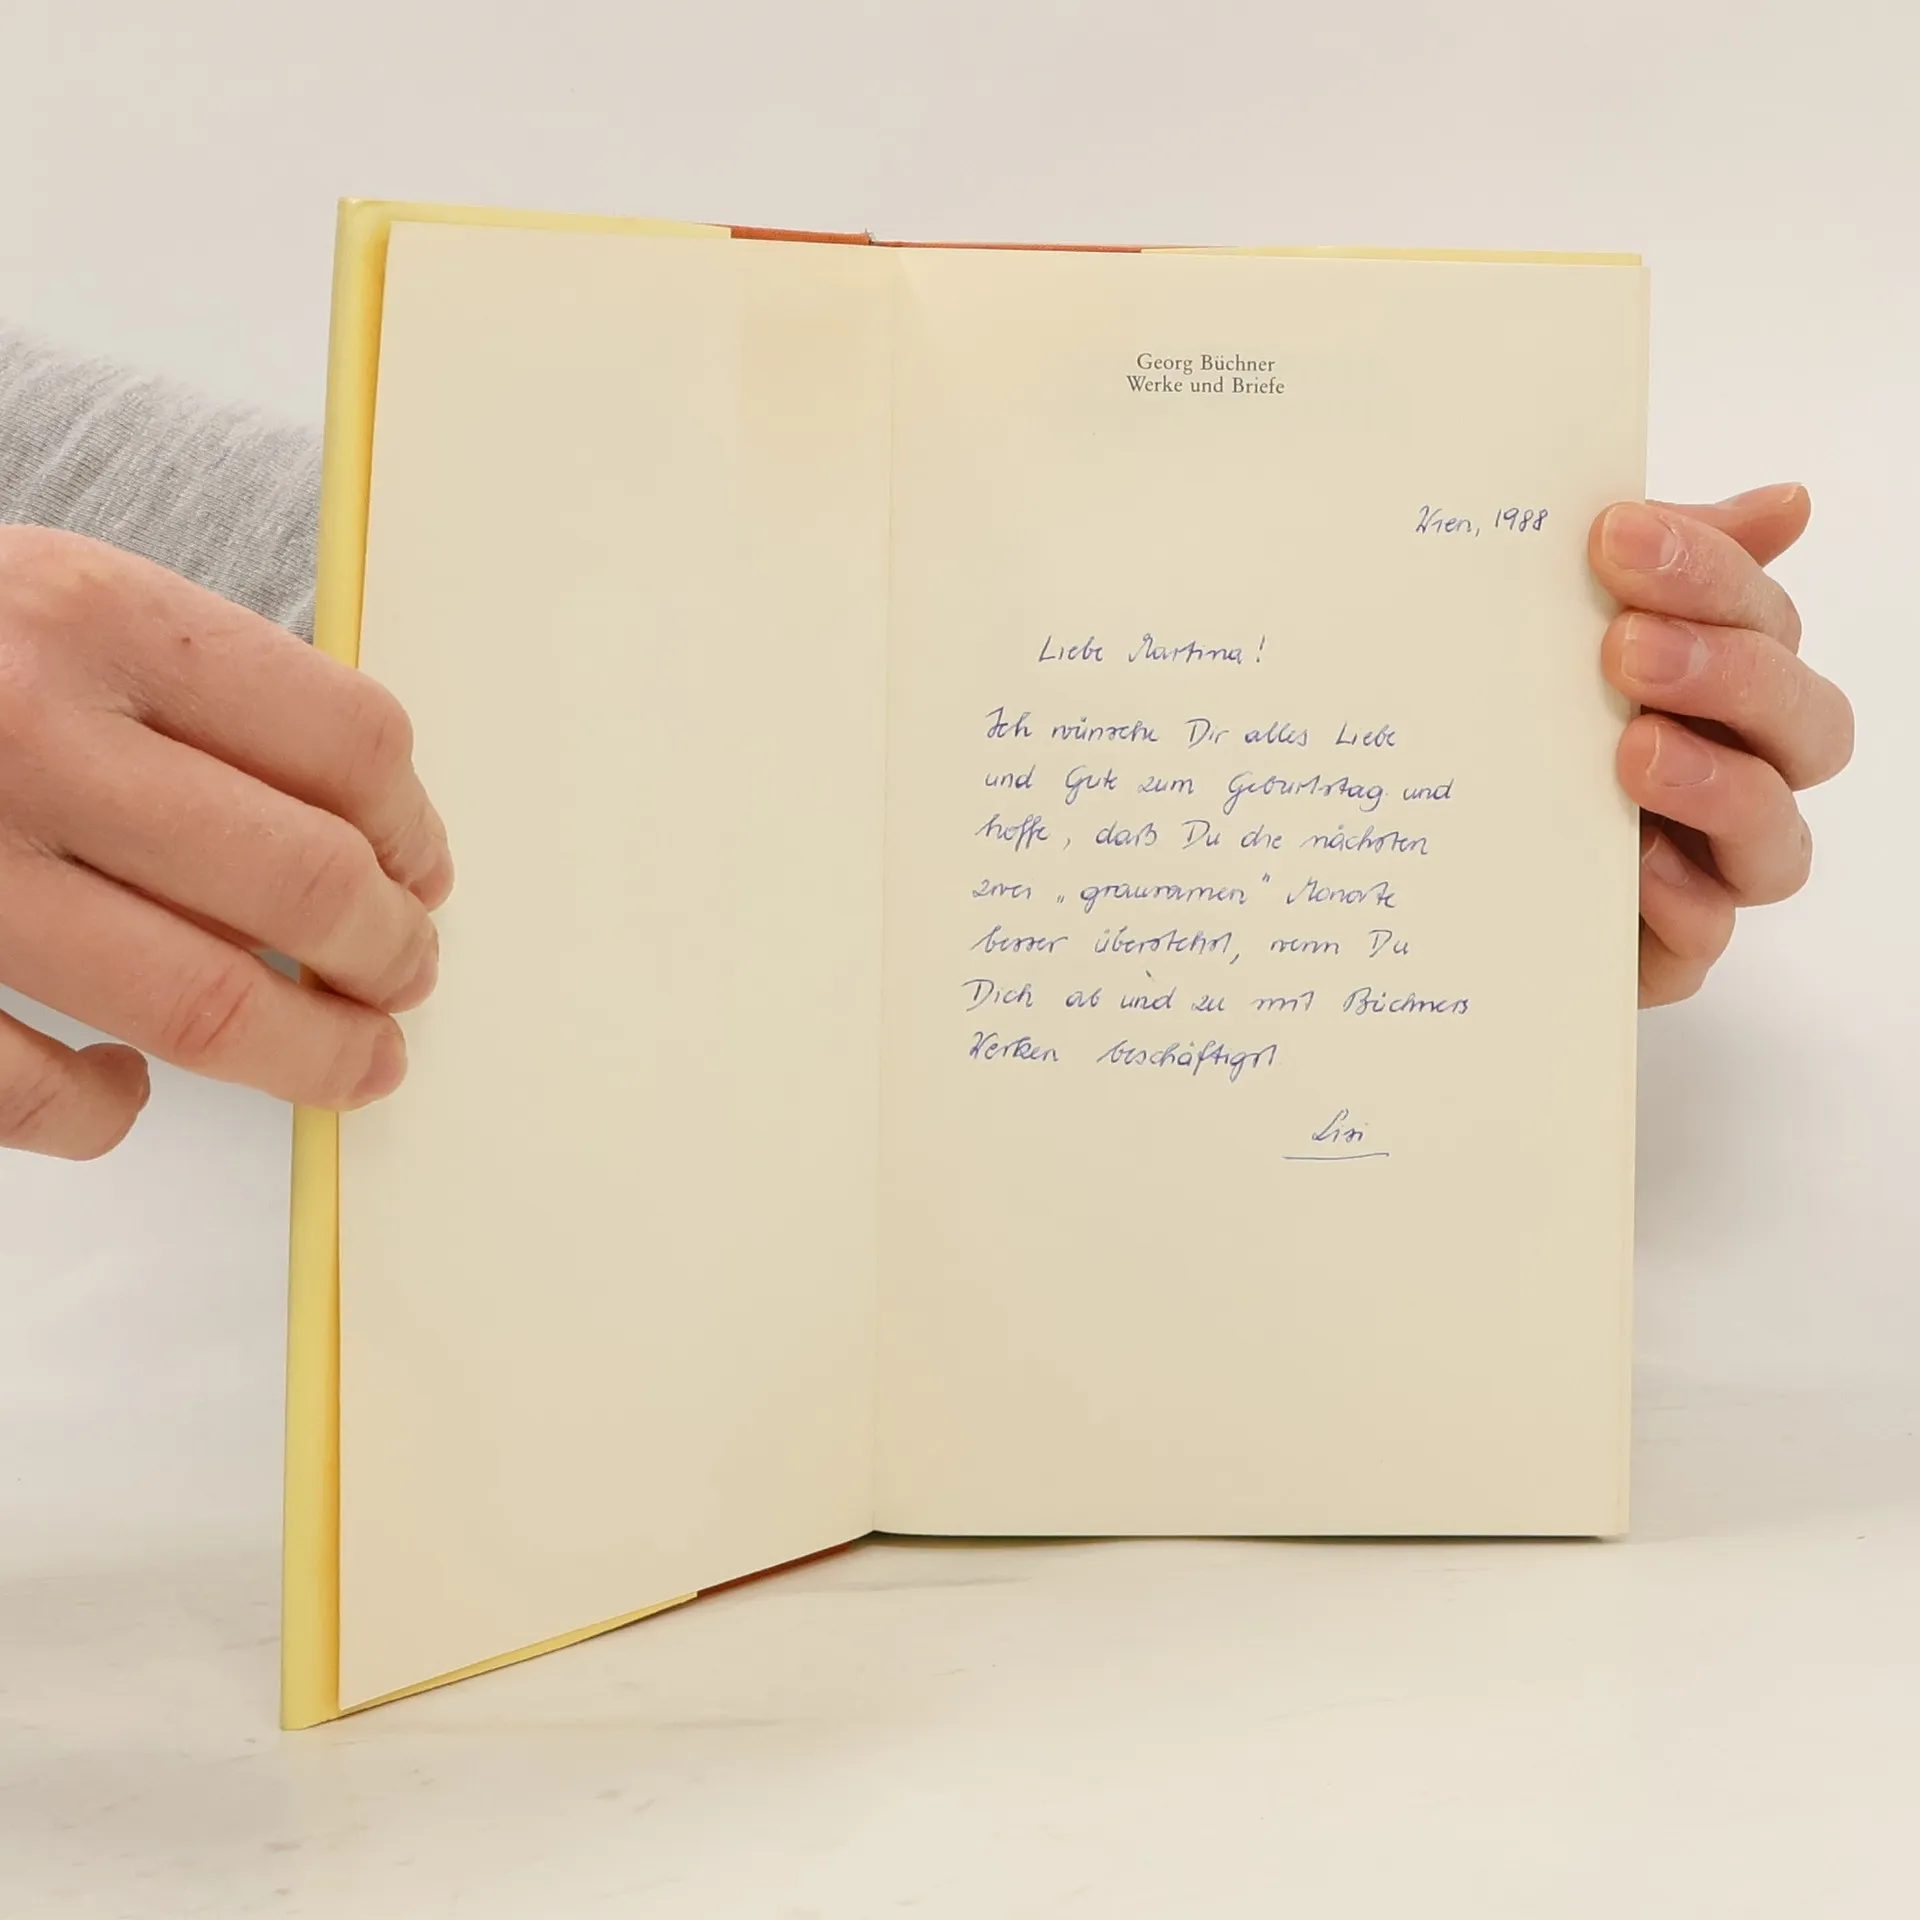 Georg Büchner
Werke und Briefe
Wien, 1988
Liebe Martina!
Ich wünsche Dir alles Liebe
und Gute zum Geburtstag und
hoffe, daß Du die nächsten
zwei „grausamen" Monate
besser überstehst, wenn Du
Dich ab und zu mit Büchners
Werken beschäftigst
Lisi